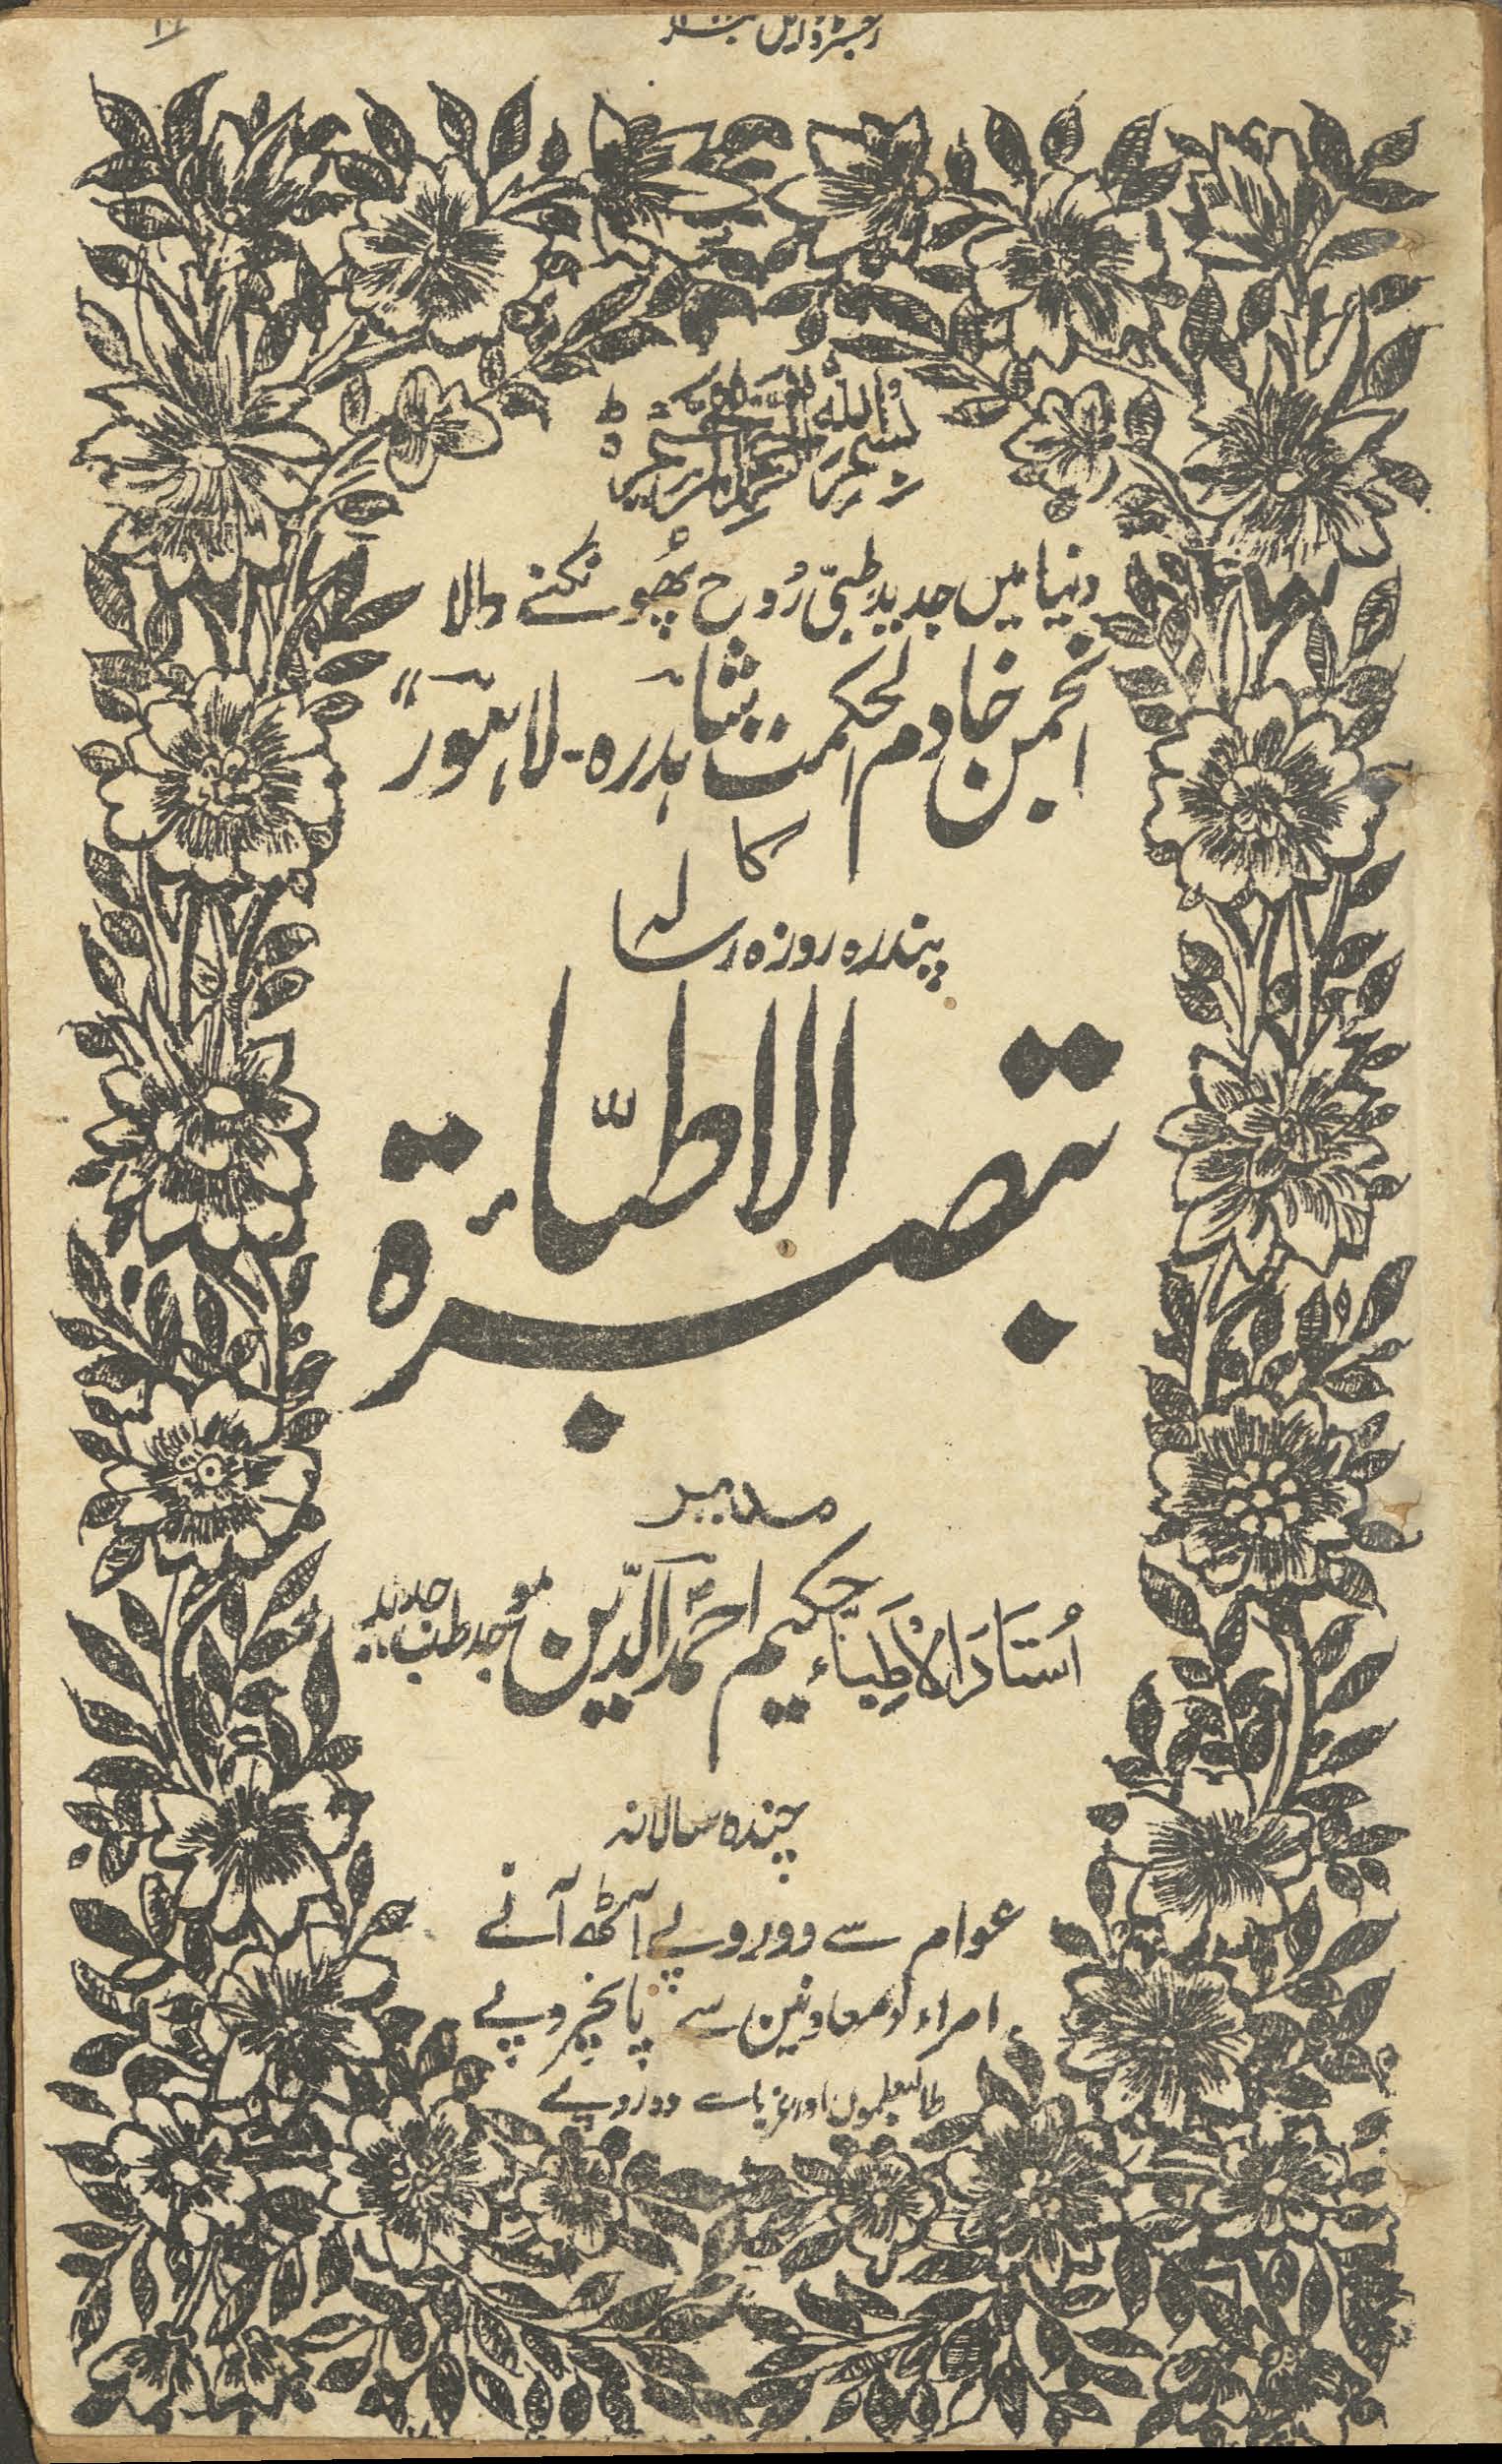 رجسٹرڈ ایل نمبر
بسم اللہ الرحمن الرحیم
دنیا میں جدید طبّی رُوح پھُونکنے والا
انجمن خادم الحکمت شاہدرہ - لاہور"
کا
پندرہ روزہ رسالہ
تبصرۃ الاطبّاء
مدیر
اُستاذ الاطباء حکیم احمد الدّین موجد طب جدید
چندہ سالانہ
عوام سے دو روپے آٹھ آنے
امراء اور معاونین سے پانچروپے
طالبعلموں اور غرباسے دوروپے